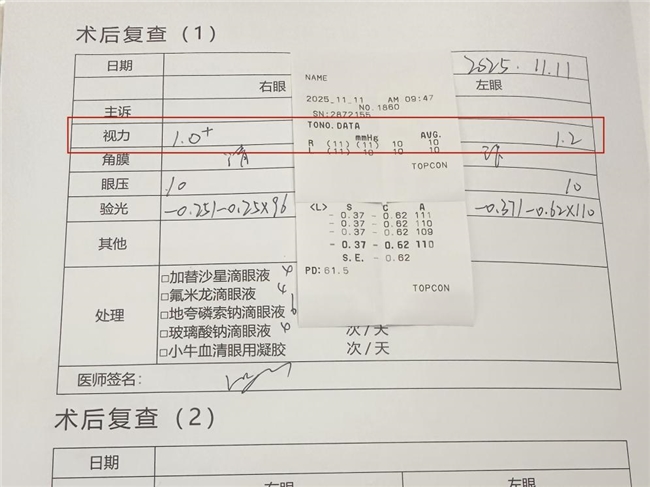 术后复查（1）
日期 2025.11.11
右眼 左眼
主诉
视力 1.0+ 1.2
角膜 清
眼压 10 10
验光 -0.25/-0.25×96 -0.37/-0.62×110
其他
处理
□加替沙星滴眼液 4
□氟米龙滴眼液 4
□地夸磷索钠滴眼液 6
□玻璃酸钠滴眼液 4 次/天
□小牛血清眼用凝胶 次/天
医师签名：
NAME
2025_11_11 AM 09:47
NO.1860
SN:2872155
TONO.DATA
mmHg AVG.
R (11) (11) 10 10
L (11) 10 10 10
TOPCON
<L> S C A
- 0.37 - 0.62 111
- 0.37 - 0.62 110
- 0.37 - 0.62 109
- 0.37 - 0.62 110
S.E. - 0.62
PD: 61.5
TOPCON
术后复查（2）
日期
右眼 左眼